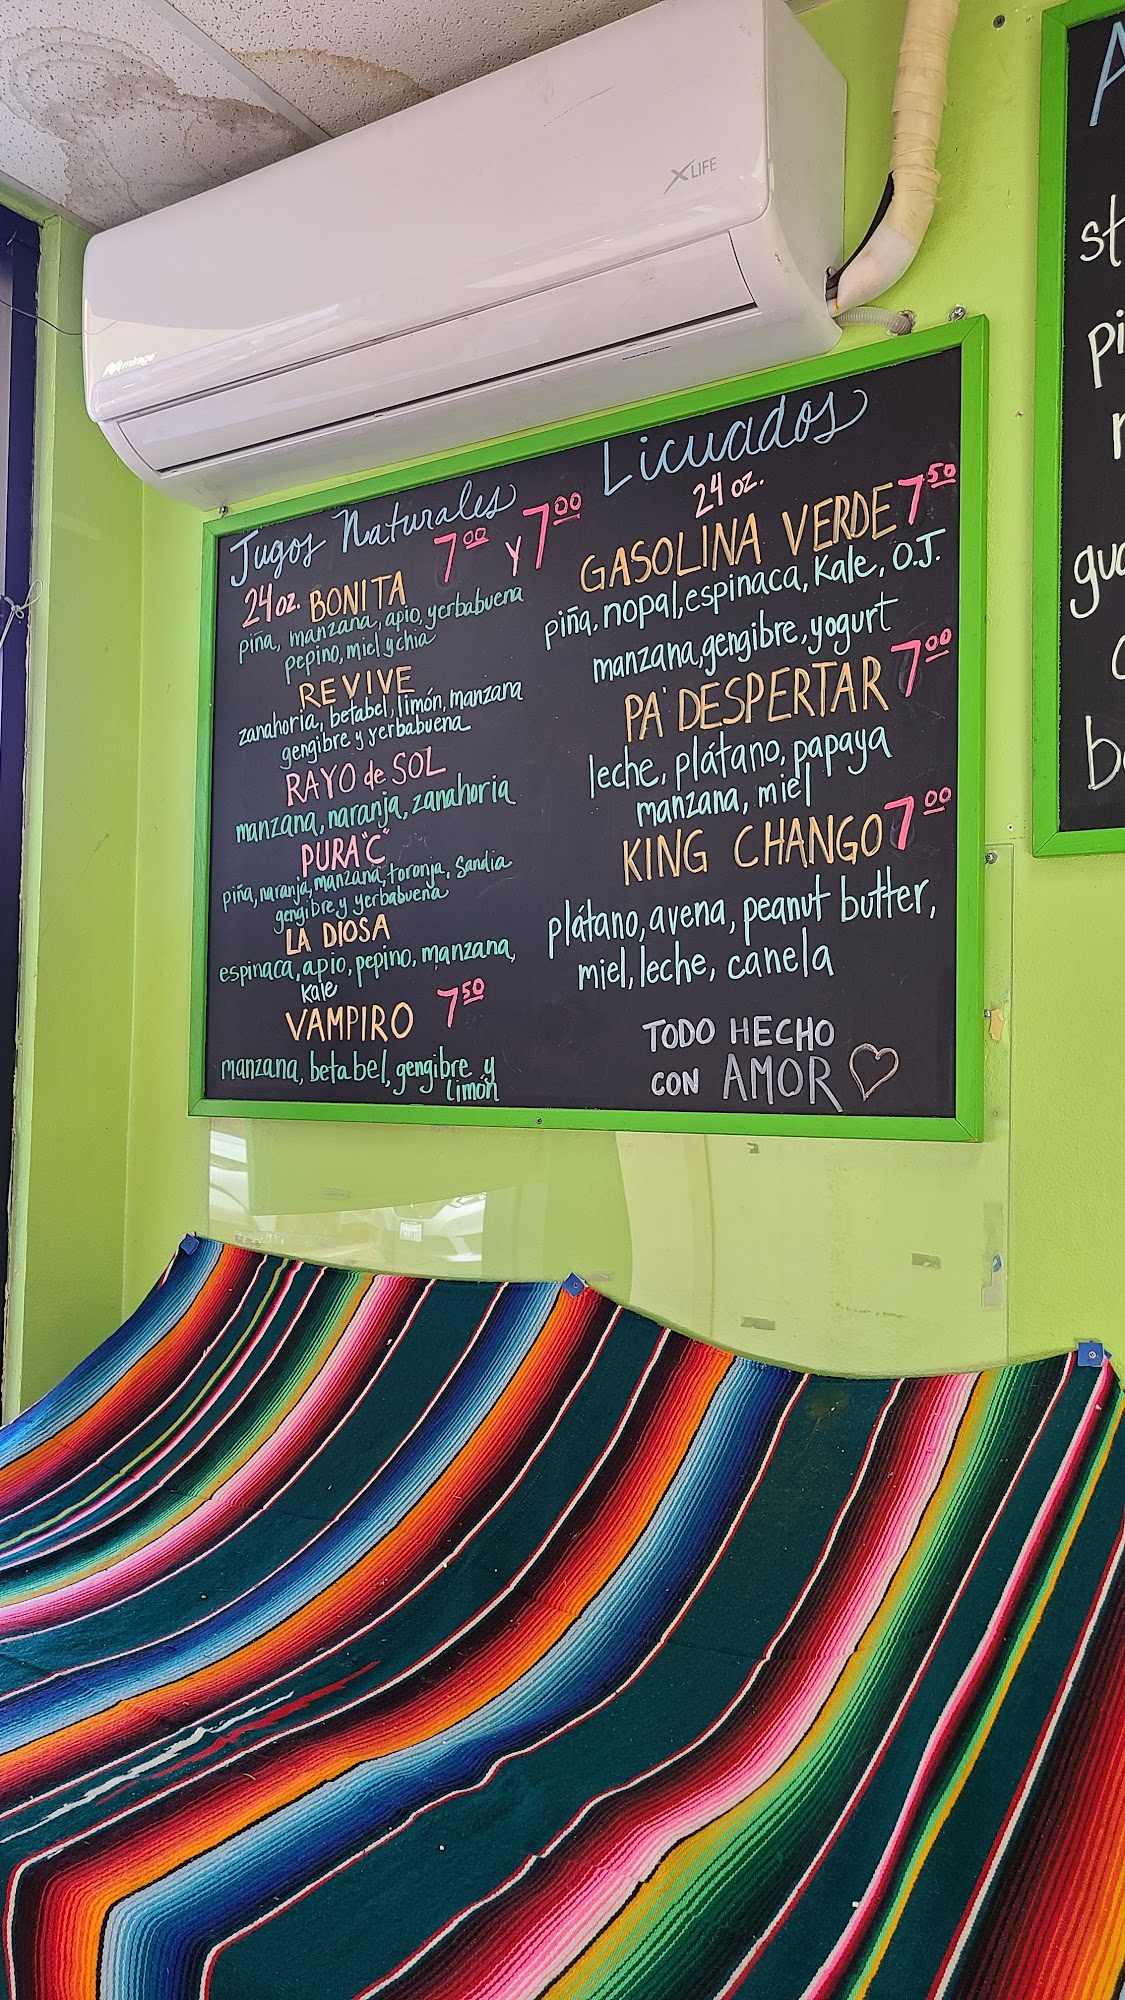 XLIFE
mirage
Jugos Naturales
7.00 y 7.00
24 oz. BONITA
piña, manzana, apio, yerbabuena
pepino, miel y chia
REVIVE
zanahoria, betabel, limón, manzana
gengibre y yerbabuena
RAYO de SOL
manzana, naranja, zanahoria
PURA "C"
piña, naranja, manzana, toronja, Sandia
gengibre y yerbabuena
LA DIOSA
espinaca, apio, pepino, manzana,
Kale
VAMPIRO 7.50
manzana, betabel, gengibre y
limón
Licuados
24 oz.
GASOLINA VERDE 7.50
piña, nopal, espinaca, Kale, O.J.
manzana, gengibre, yogurt
PA' DESPERTAR 7.00
leche, plátano, papaya
manzana, miel
KING CHANGO 7.00
plátano, avena, peanut butter,
miel, leche, canela
TODO HECHO
CON AMOR